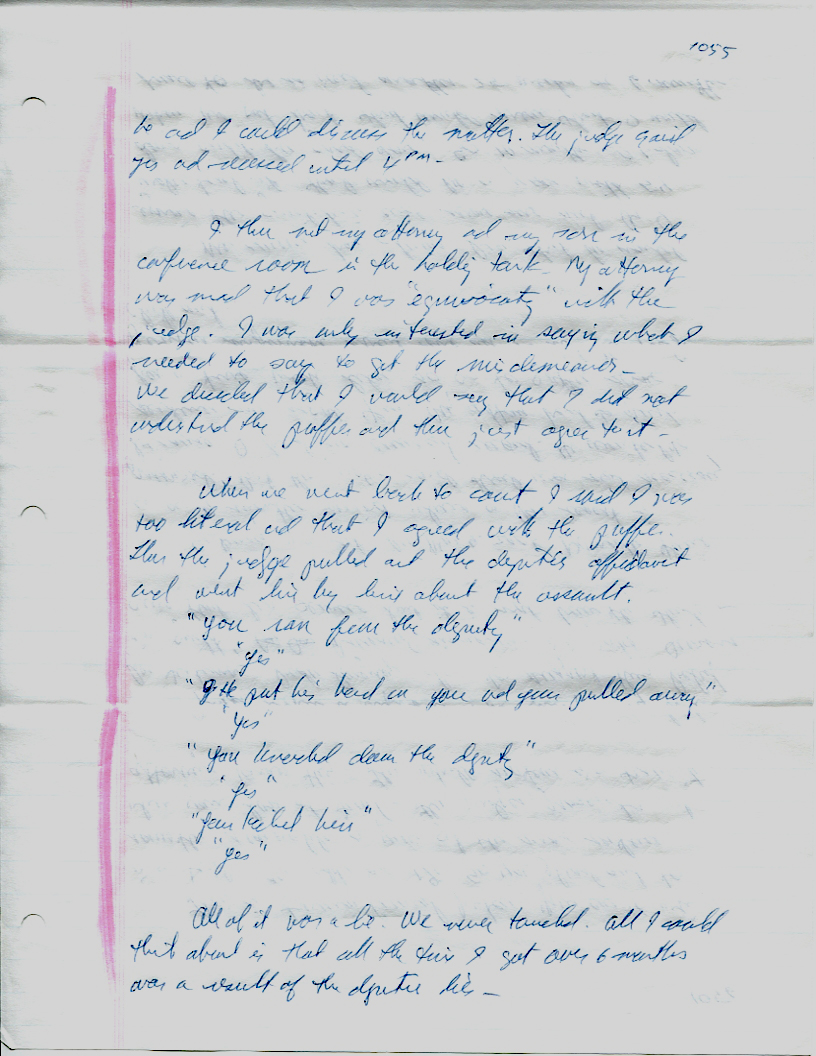 1055
to ad I could discuss the matter. The judge said
yes ad recessed until 4PM-
I then met my attorney ad my son in the
conference room in the holding tank. My attorney
was mad that I was "equivocating" with the
judge. I was only interested in saying what I
needed to say to get the misdemeanor-
We decided that I would say that I did not
understand the and then just agree to it-
When we went back to court I said I was
too literal ad that I agreed with the
Then the judge pulled out the deputies affidavit
and went line by line about the assault.
"you ran from the deputy"
"yes"
"He put his hand on you ad you pulled away"
"yes"
"you knocked down the deputy"
"yes"
"you kicked him"
"yes"
All of it was a lie. We never touched. All I could
think about is that all the time I got over 6 months
was a result of the deputies lies-